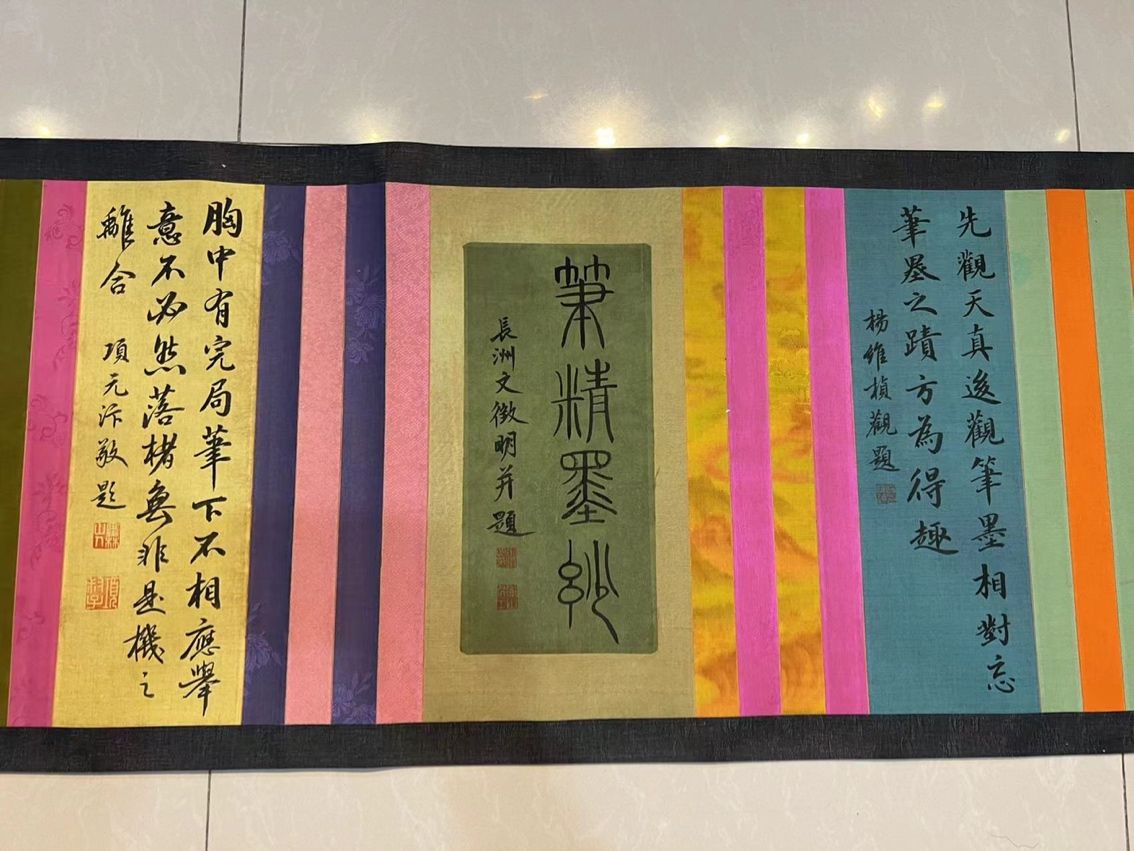 先觀天真後觀筆墨相對忘
筆墨之蹟方為得趣
楊維楨觀題
筆精墨妙
長洲文徵明并題
胸中有完局筆下不相應舉
意不必然落楮無非是機之
離合 項元汴敬題